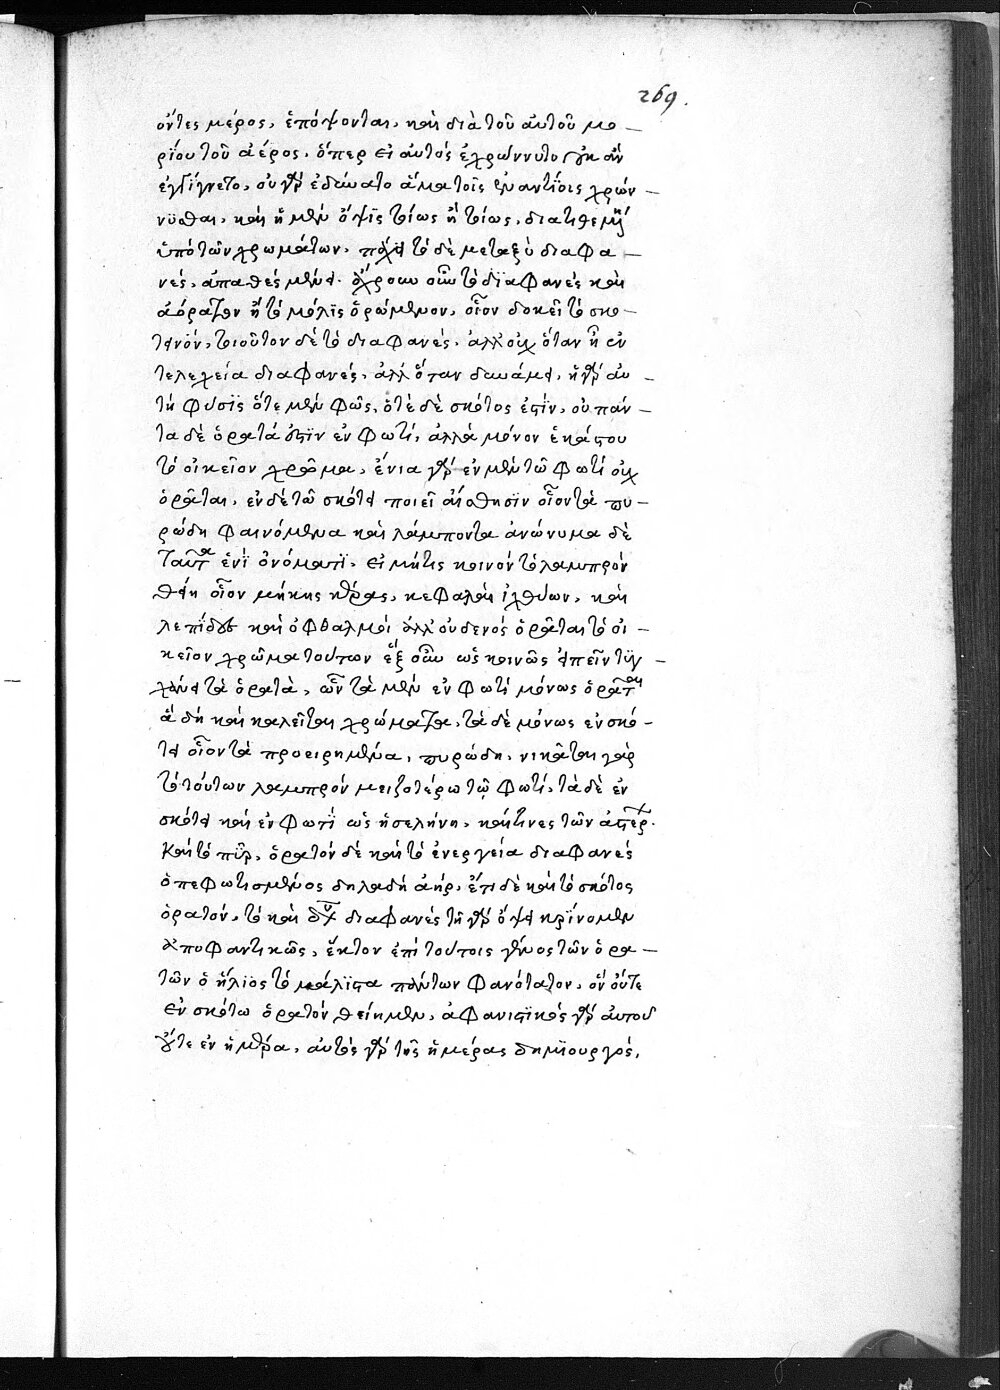 269.
ὄντες μέρος, ἑπόψονται, καὶ διὰ τοῦ αὐτοῦ μο –
ρίου τοῦ ἀέρος, ὅπερ εἰ αὐτὸς ἐχρώννυτο οὐκ ἂν
ἐγίγνετο, οὐ γὰρ ἐδύνατο ἅμα τοῖς ἐναντίοις χρών –
νυσθαι, καὶ ἡ μὲν ὄψις τίως ἢ τίως, διατιθεμένη
ὑπὸ τῶν χρωμάτων, πάσχει τὸ δὲ μεταξὺ διαφα –
νές, ἀπαθὲς μένει. ἄχρουν οὖν τὸ διαφανὲς καὶ
ἀόρατον ἢ τὸ μόλις ὁρώμενον, οἷον δοκεῖ τὸ σκο –
τεινόν, τοιοῦτον δὲ τὸ διαφανές, ἀλλ' οὐχ ὅταν ᾖ ἐν
τελεχεία διαφανές, ἀλλ' ὅταν δυνάμει, ἡ γὰρ αὐ –
τὴ φύσις ὅτε μὲν φῶς, ὅτε δὲ σκότος ἐστίν, οὐ πάν –
τα δὲ ὁρατά ἐστιν ἐν φωτί, ἀλλὰ μόνον ἑκάστου
τὸ οἰκεῖον χρῶμα, ἔνια γὰρ ἐν μὲν τῶ φωτὶ οὐχ
ὁρᾶται, ἐν δὲ τῶ σκότει ποιεῖ αἴσθησιν οἷον τὰ πυ –
ρώδη φαινόμενα καὶ λάμποντα ἀνώνυμα δὲ
ταῦτα ἑνὶ ὀνόματι, εἰ μήτις κοινὸν τὸ λαμπρὸν
θείη οἷον μήκης κέρας, κεφαλαὶ ἰχθύων, καὶ
λεπίδες καὶ ὀφθαλμοὶ ἀλλ' οὐδενὸς ὁρᾶται τὸ οἰ –
κεῖον χρῶμα τούτων ἐξ οὖν ὡς κοινῶς εἰπεῖν τυγ –
χάνει τὰ ὁρατὰ, ὧν τὰ μὲν ἐν φωτὶ μόνως ὁρᾶται
ἃ δὴ καὶ καλεῖται χρώματα, τὰ δὲ μόνως ἐν σκό –
τει οἷον τὰ προειρημένα, πυρώδη, νικᾶται γὰρ
τὸ τούτων λαμπρὸν μειζοτέρω τῷ φωτί, τὰ δὲ ἐν
σκότει καὶ ἐν φωτὶ ὡς ἡ σελήνη, καὶ τινες τῶν ἀστέρων.
καὶ τὸ πῦρ, ὁρατὸν δὲ καὶ τὸ ἐνεργεία διαφανὲς
ὁ πεφωτισμένος δηλαδὴ ἀήρ, ἔτι δὲ καὶ τὸ σκότος
ὁρατόν, τὸ καὶ διαφανὲς τῇ γὰρ ὄψει κρίνομεν
ἀποφαντικῶς, ἕκτον ἐπὶ τούτοις γένος τῶν ὁρα –
τῶν ὁ ἥλιος τὸ μάλιστα πάντων φανότατον, ὃν οὔτε
ἐν σκότω ὁρατὸν θείημεν, ἀφανιστικὸς γὰρ αὐτοῦ
οὔτε ἐν ἡμέρα, αὐτὸς γὰρ τῆς ἡμέρας δημιουργός,